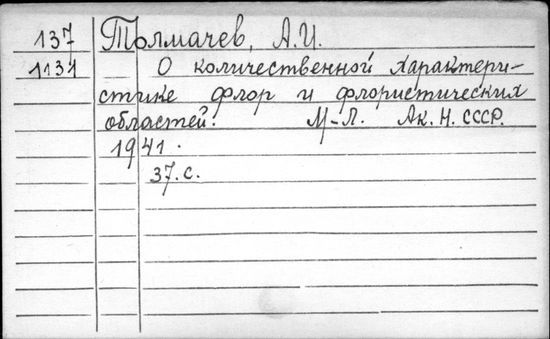 137 Толмачев, А.И.
1131 О количественной характери-
стике флор и флористических
областей. М-Л. Ак. Н. СССР.
1941.
37.с.